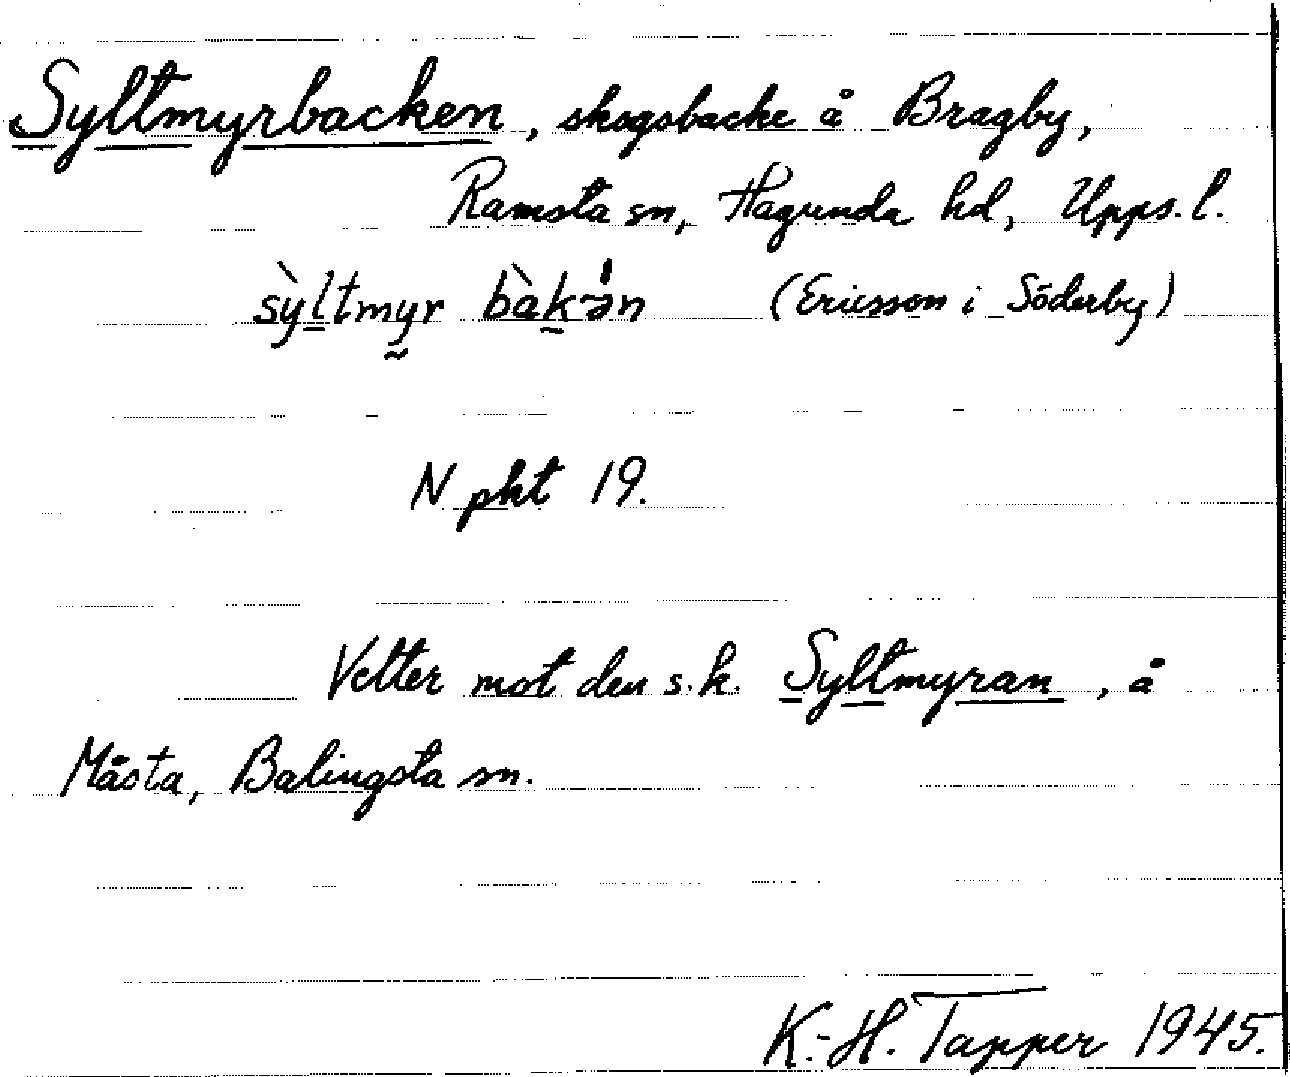 Syltmyrbacken, skogsbacke å Bragby,
Ramsta sn, Hagunda hd, Upps. l.
sỳltmyr bàkən (Ericsson i Söderby)
N pkt 19.
Vetter mot den s.k. Syltmyran, å
Måsta, Balingsta sn.
K.-H. Tapper 1945.